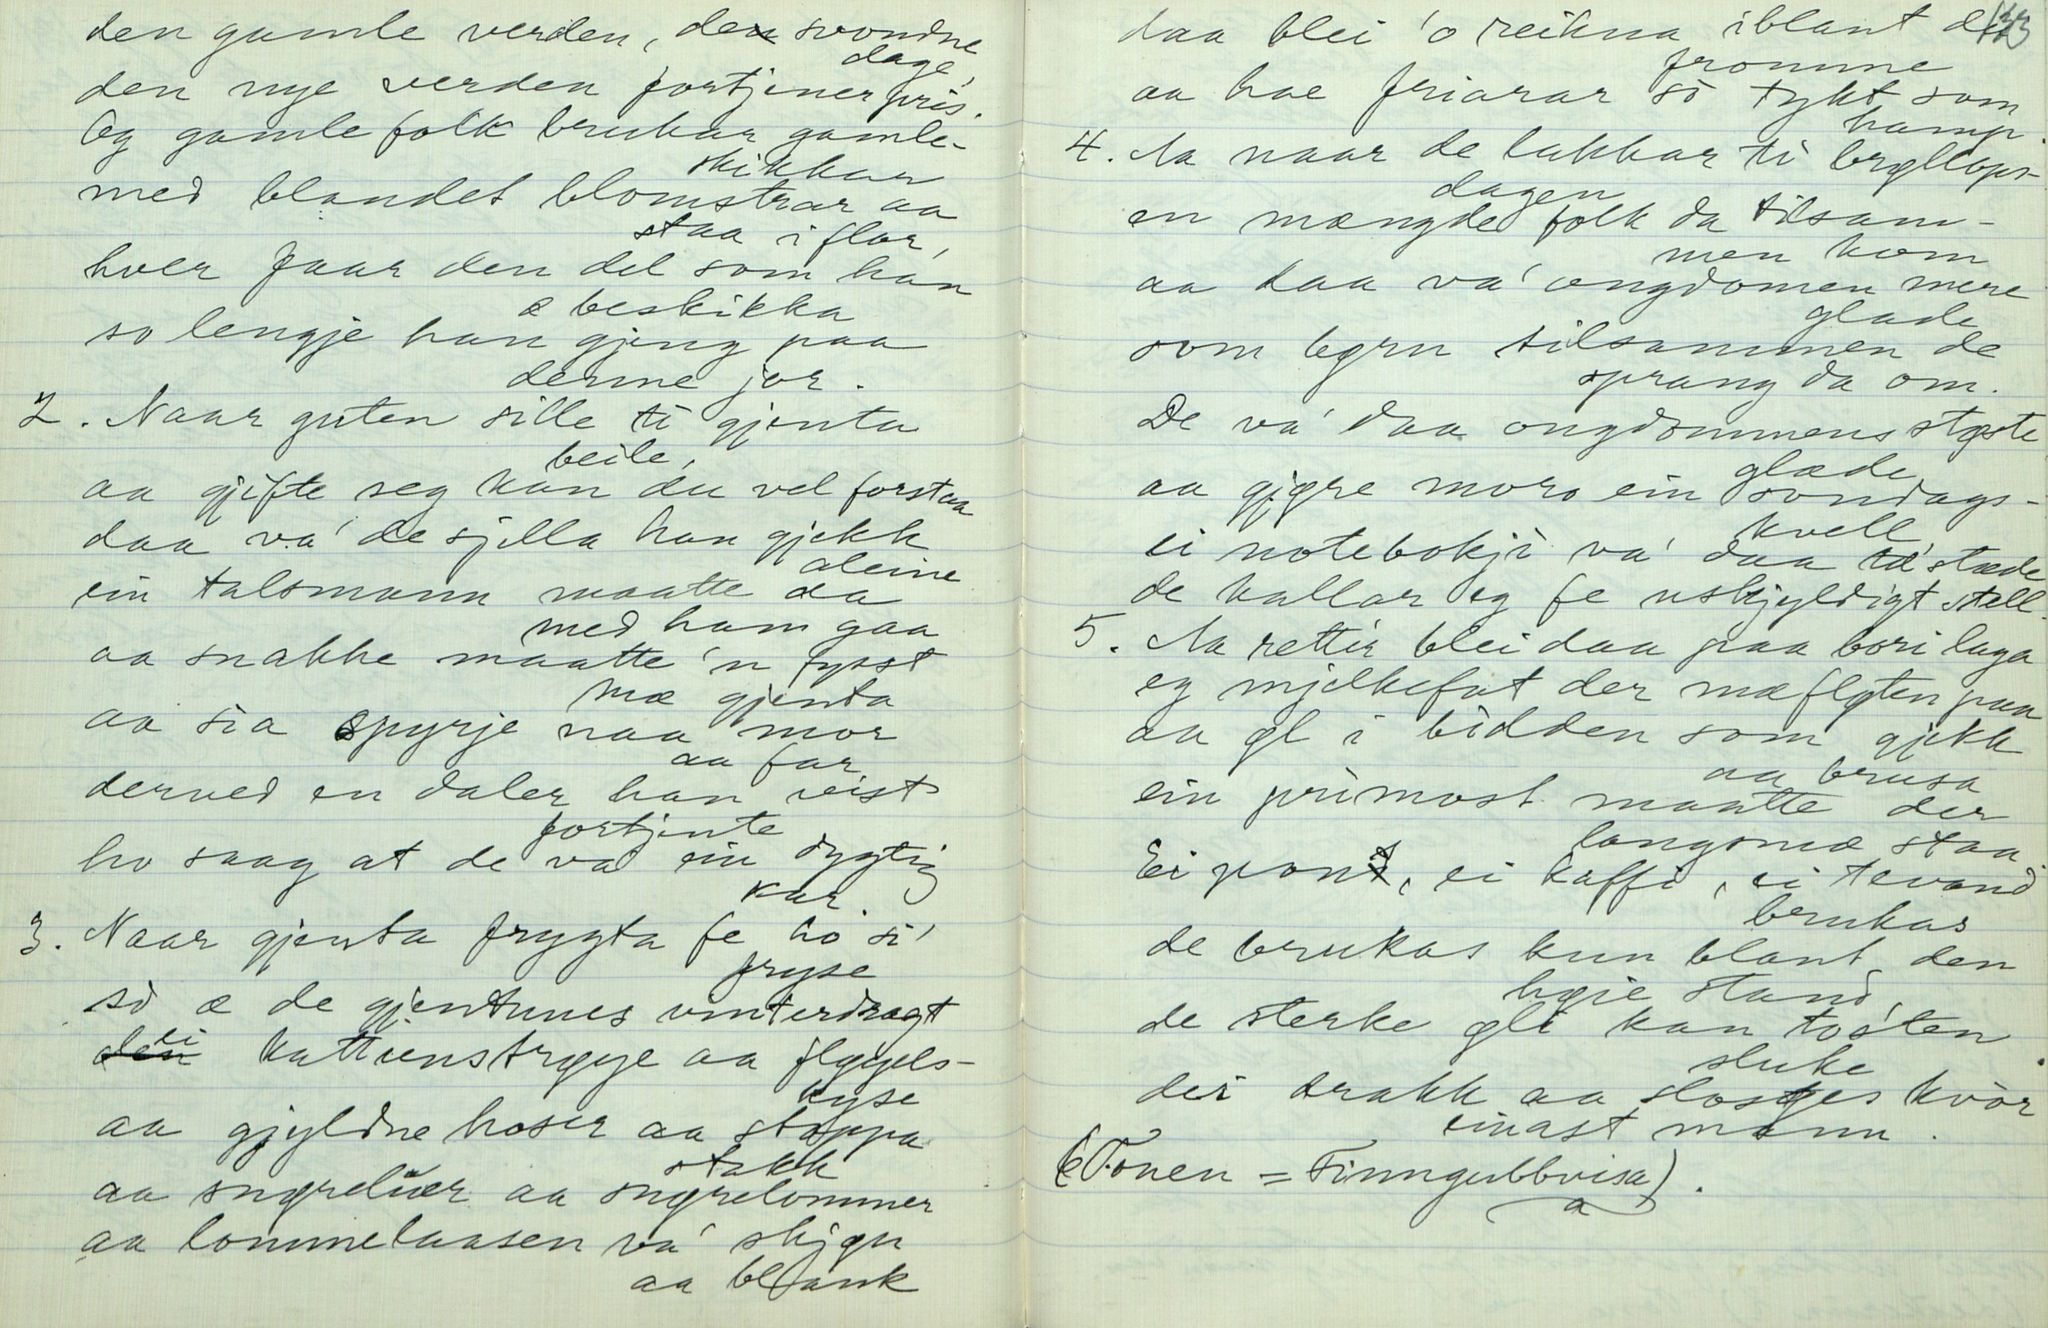 den gamle verden, den svondne
dage,
den nye verden fortjener pris.
Og gamle folk brukar gamle-
skikkar
med blandet blomstrar aa
staa i flor,
hver faar den del som han
e beskikka
so lengje han gjeng paa
denne jor.
2. Naar guten sille ti gjenta
beile,
aa gjifte seg kan du vel forstaa
daa va' de sjilla han gjekk
aleine
ein talsmann maatte da
med ham gaa
aa snakke maatte 'n fysst
mæ gjenta
aa sia spyrje naa mor
aa far
derved en daler han vist
fortjente
ho saag at de va ein dygtig
kar.
3. Naar gjenta frygta fe ho si'
fryse
so æ de gjentunes vinterdragt
ei kattunstrøye aa fløyels-
kyse
aa gjyldne hoser aa stoppa
stakk
aa snøreliver aa snørelommer
aa lommelaasen va' skjøn
aa blank
133
daa blei 'o reikna iblant de
fromme
aa hae friarar so tykt som
hamp.
4. Aa naar de lakkar ti bryllops-
dagen
en mængde folk da tilsam-
men kom
aa daa va' ongdomen mere
glade
som børn tilsammen de
sprang da om.
De va' daa ongdommens støste
glæde
aa gjøre moro ein sondags-
kvell
ei notebokji va' daa te' stæde
de kallar eg fe uskjyldigt stell.
5. Aa rettir blei daa paa bori laga
eg mjelkefat der mæ fløten paa
aa øl i bidden som gjekk
aa brusa
ein primost maatte der
langsmæ staa.
Ei pons, ei kaffi, ei tevand
brukas
de brukas kun blant den
høie stand,
de sterke øli kan tosten
sluke
dei drakk aa sloges kvor
einast mann.
(Tonen = Finngubbvisa).
a